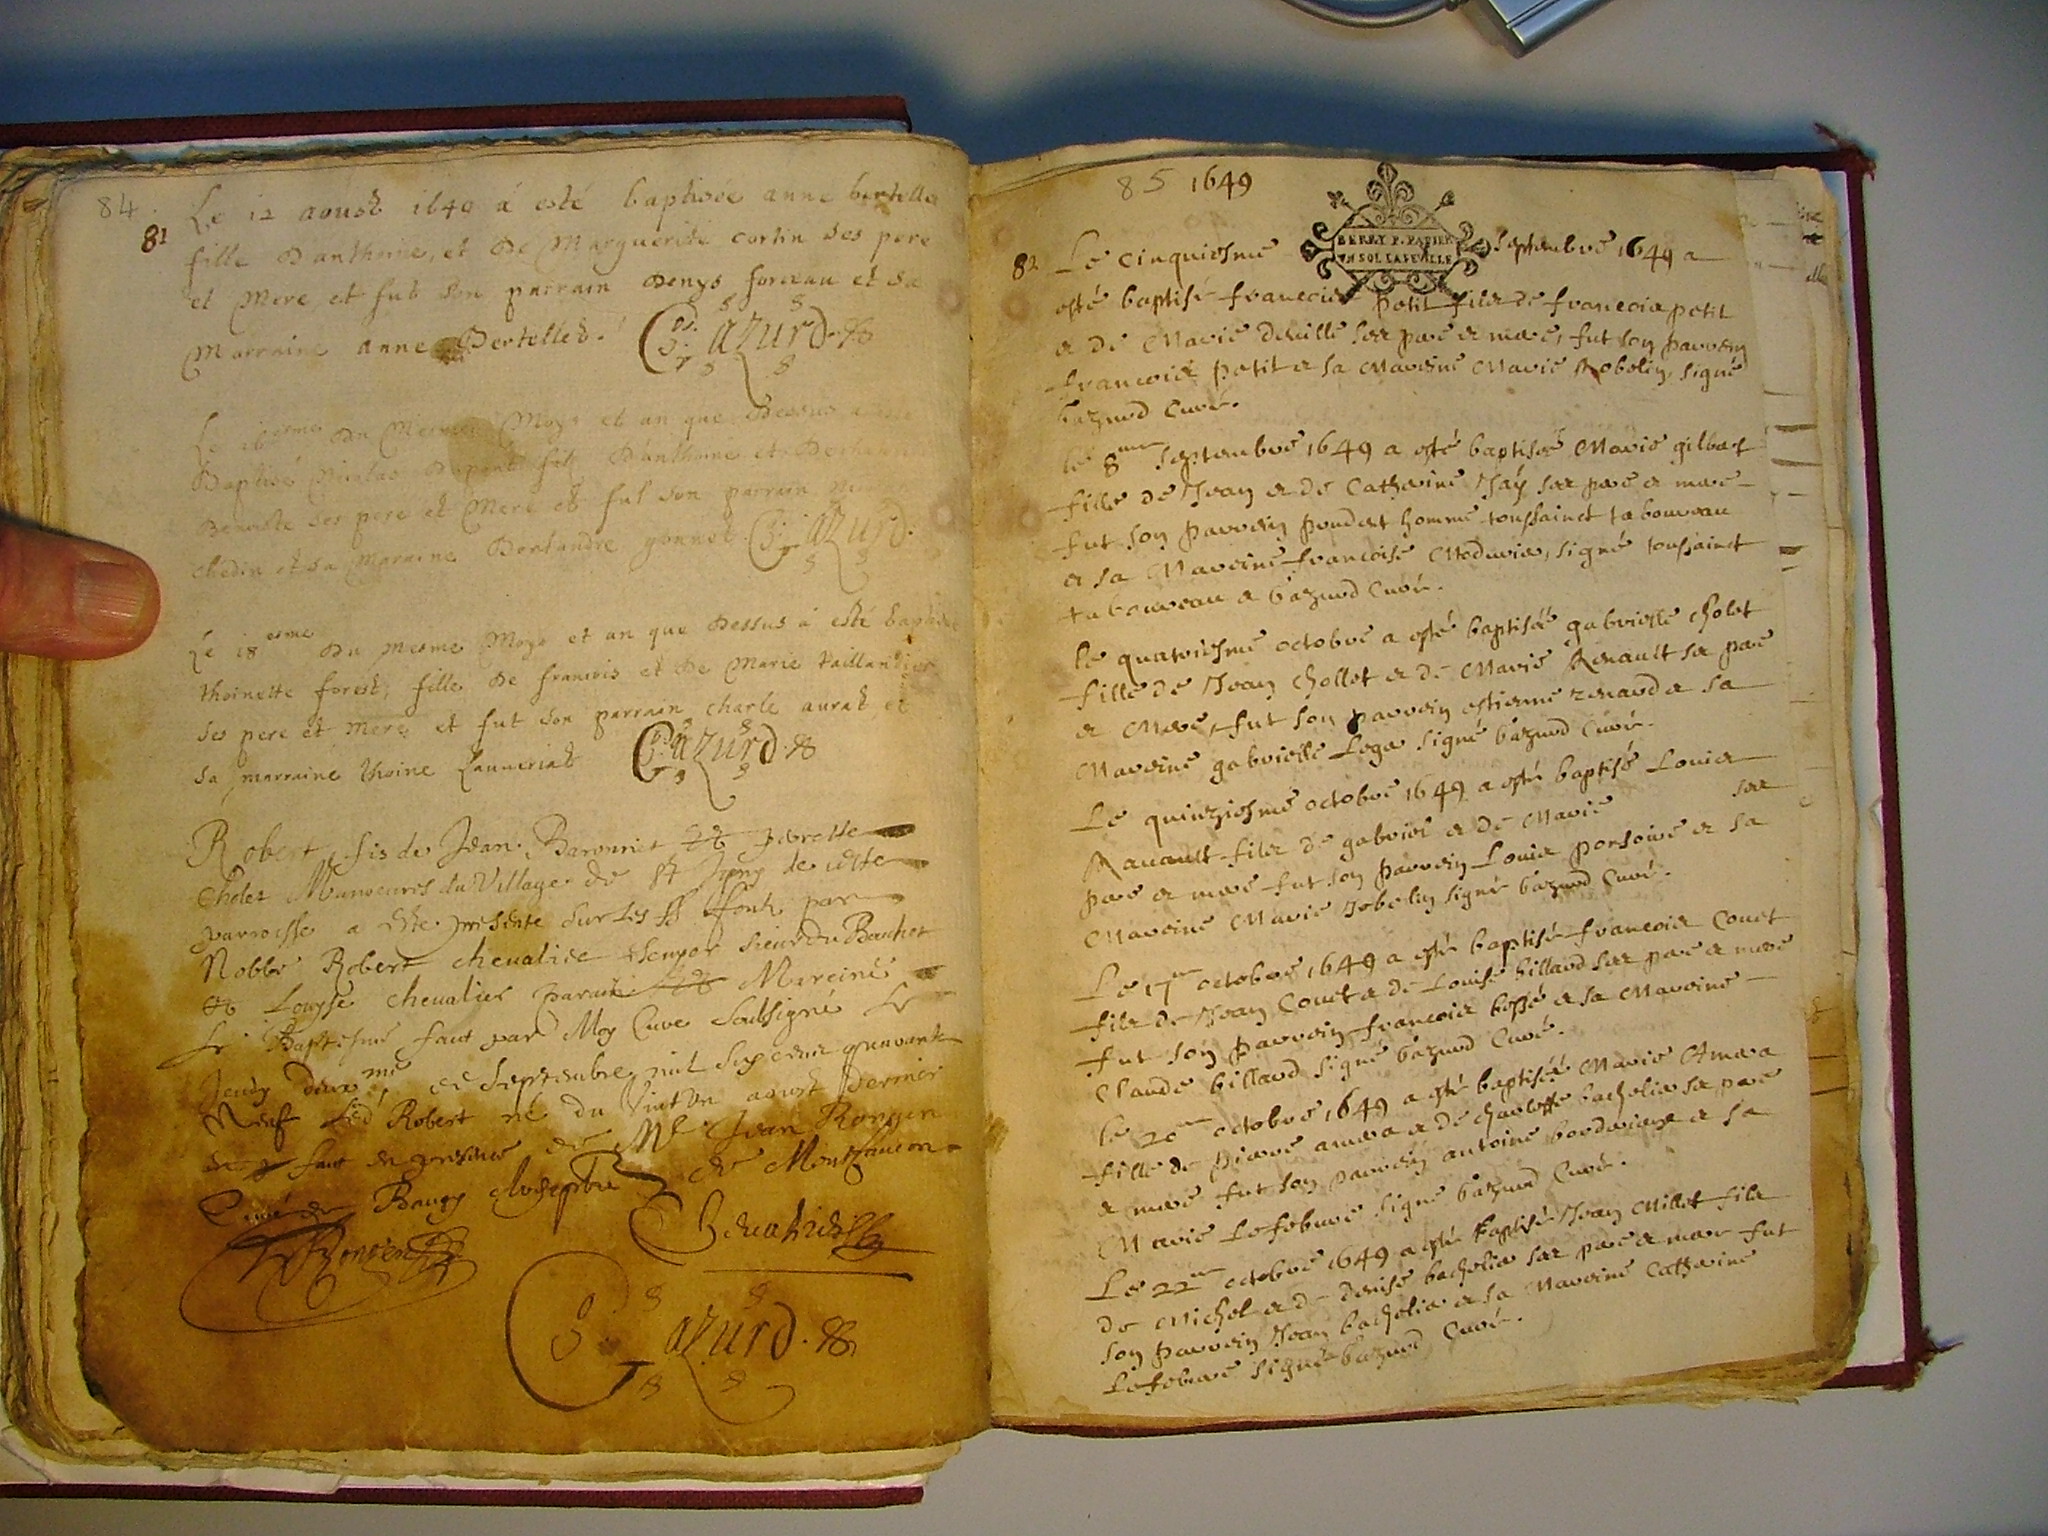 84
81
Le 12 aoust 1649 á esté baptisée anne bertelles
fille D'anthoine, et De Marguerite cortin ses pere
et Mere, et fut son parrain Denys foreau et sa
Marraine anne Bertelles. Bazurd
Le 16 esme Du Mesme Moys et an que Dessus a esté
Baptisé Nicolas Dupont fils D'anthoine et De
Benoiste ses pere et Mere et fut son parrain
chedin et sa Maraine gonnet. Bazurd.
Le 18 esme Du mesme Moys et an que Dessus á esté baptisée
thoinette forest, fille De francois et De Marie taillandier
ses pere et Mere, et fut son parrain charle aurat, et
sa marraine thoine Bazurd
Robert fis de Jean Baronnet et perette
Cholet Manoeuvres du Village de St de cette
parroisse a Este presente sur Les ss fonts par
Noble Robert chevalier sieur du Bouchet
et Louyse chevalier parain et Mareine
Le Baptesme faict par Moy Curé Soubsigné Le
Jeudy deux me de Septembre mil six cens quarante
Neuf Led Robert né du Vint Un aoust dernier
faict en presence de Me Jean Rongin
Curé de Baugy de Montfaucon
Bazurd
85 1649
BERRY P. PAPIER
VN SOL LA FEVILLE
82
Le cinquiesme septembre 1649 a
esté baptisé francois petit fils de francois petit
et de Marie deuille ses pere et mere, fut son parrein
francois petit et sa Mareine Marie Robelin, signé
bazurd Curé.
le 8me septembre 1649 a esté baptisée Marie gilbert
fille de Jean et de Catherine Jaÿ ses pere et mere
fut son parrein prudent homme toussainct taboureau
et sa Mareine francoise signé toussainct
taboureau et bazurd Curé.
le quatriesme octobre a esté baptisée gabrielle cholet
fille de Jean chollet et de Marie Renault se pere
et Mere, fut son parrein estienne renaud et sa
Mareine gabrielle Leger signé bazurd Curé.
Le quinziesme octobre 1649 a esté baptisé Louis
Rauault fils de gabriel et de Marie ses
pere et mere fut son parrein Louis porsoire et sa
Mareine Marie robelin signé bazurd Curé.
Le 17me octobre 1649 a esté baptisé francois Couet
fils de Jean Couet et de Louise billard ses pere et mere
fut son parrein francois bessé et sa Mareine
Claude billard signé bazurd Curé.
le 20me octobre 1649 a esté baptisée Marie
fille de pierre et de charlotte bachelier se pere
et mere fut son parrein antoine et sa
Marie Lefebure signé bazurd Curé.
Le 22me octobre 1649 a esté baptisé Jean Millet fils
de Michel et de denise bachelier ses pere et mere fut
son parrein Jean bachelier et sa Mareine Catherine
Lefebure signé bazurd Curé.